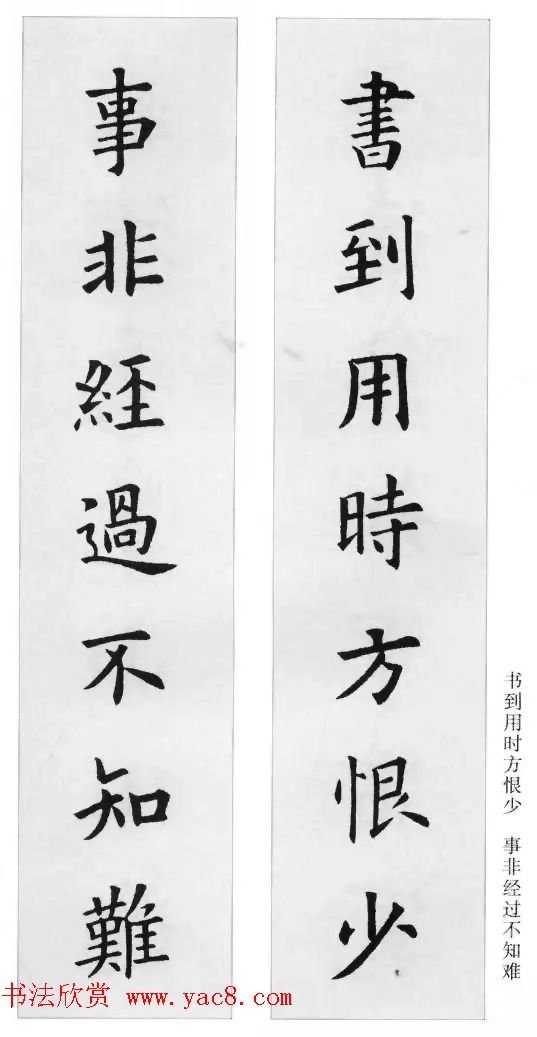 書到用時方恨少
事非經過不知難
书到用时方恨少 事非经过不知难
书法欣赏 www.yac8.com